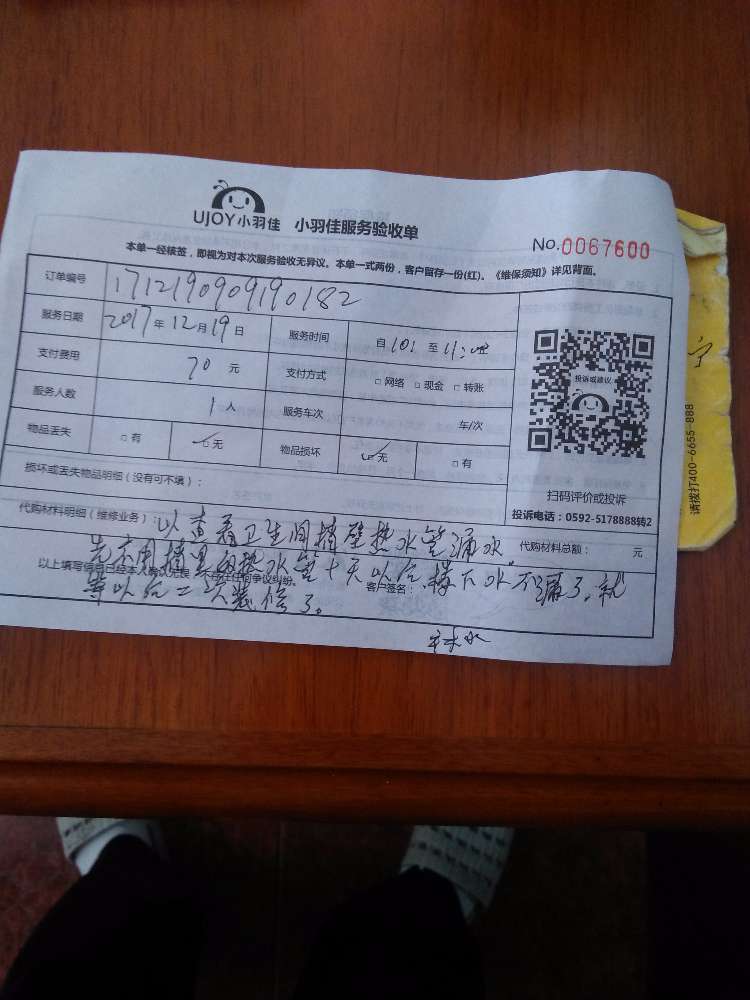 UJOY小羽佳 小羽佳服务验收单
No.0067600
本单一经核签，即视为对本次服务验收无异议。本单一式两份，客户留存一份(红)。《维保须知》详见背面。
订单编号 1712190909190182
服务日期 2017年12月19日 服务时间 自 至
支付费用 70元 支付方式 □网络 □现金 □转账
服务人数 1人 服务车次 车/次
物品丢失 □有 □无 物品损坏 □无 □有
损坏或丢失物品明细（没有可不填）：
投诉或建议
扫码评价或投诉
投诉电话：0592-5178888转2
代购材料明细（维修业务）： 以查看卫生间墙壁热水管漏水。
代购材料总额： 元
先不用墙里的热水管十天以后楼下水不漏了。就
以上填写信息已经本人确认无误，不存在任何争议纠纷。 客户签名：
等以后二次装修了。
请拨打400-6655-888